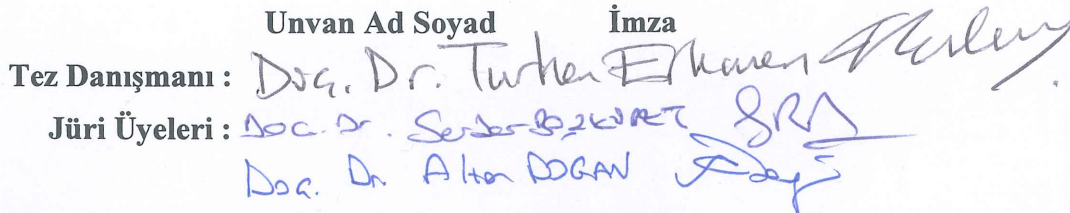 Unvan Ad Soyad İmza
Tez Danışmanı : Doç. Dr. Turhan Erkmen
Jüri Üyeleri : Doc. Dr. Serdar BOZKURT
Doç. Dr. Altan DOĞAN